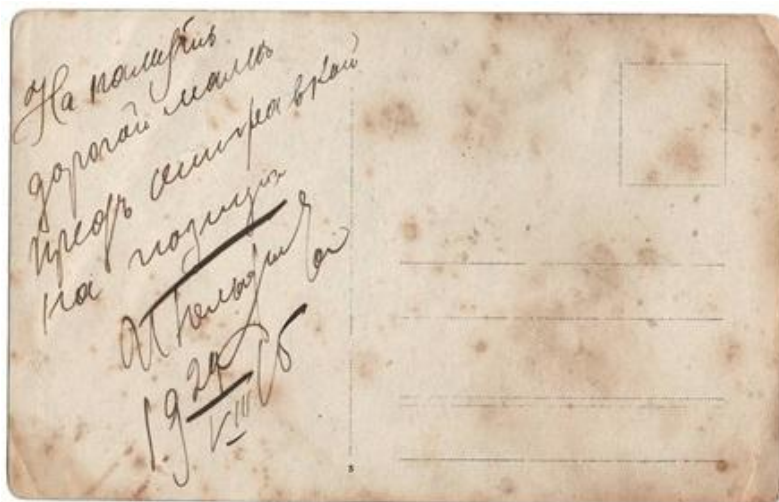 На память
дорогой мамѣ
предъ отправкой
на позицiю
19 29/VIII 15
5